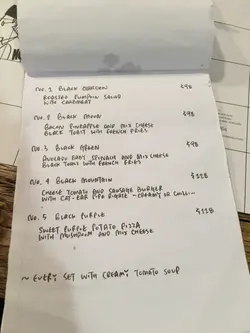 No. 1 Black Garden $98
Roasted Pumpkin Salad
with Chadberry
No. 2 Black Moon $98
Bacon Pineapple and Mix Cheese
Black Toast with French Fries
No. 3 Black Green $98
Avocado Baby Spinach and Mix Cheese
Black Toast with French Fries
No. 4 Black Mountain $128
Cheese Tomato and Sausage Burger
with Cat-Ear Pipe Rigate - Creamy or Chili -
No. 5 Black Purple $118
Sweet Purple Potato Pizza
with Mushroom and Mix Cheese
~ Every Set with Creamy Tomato Soup